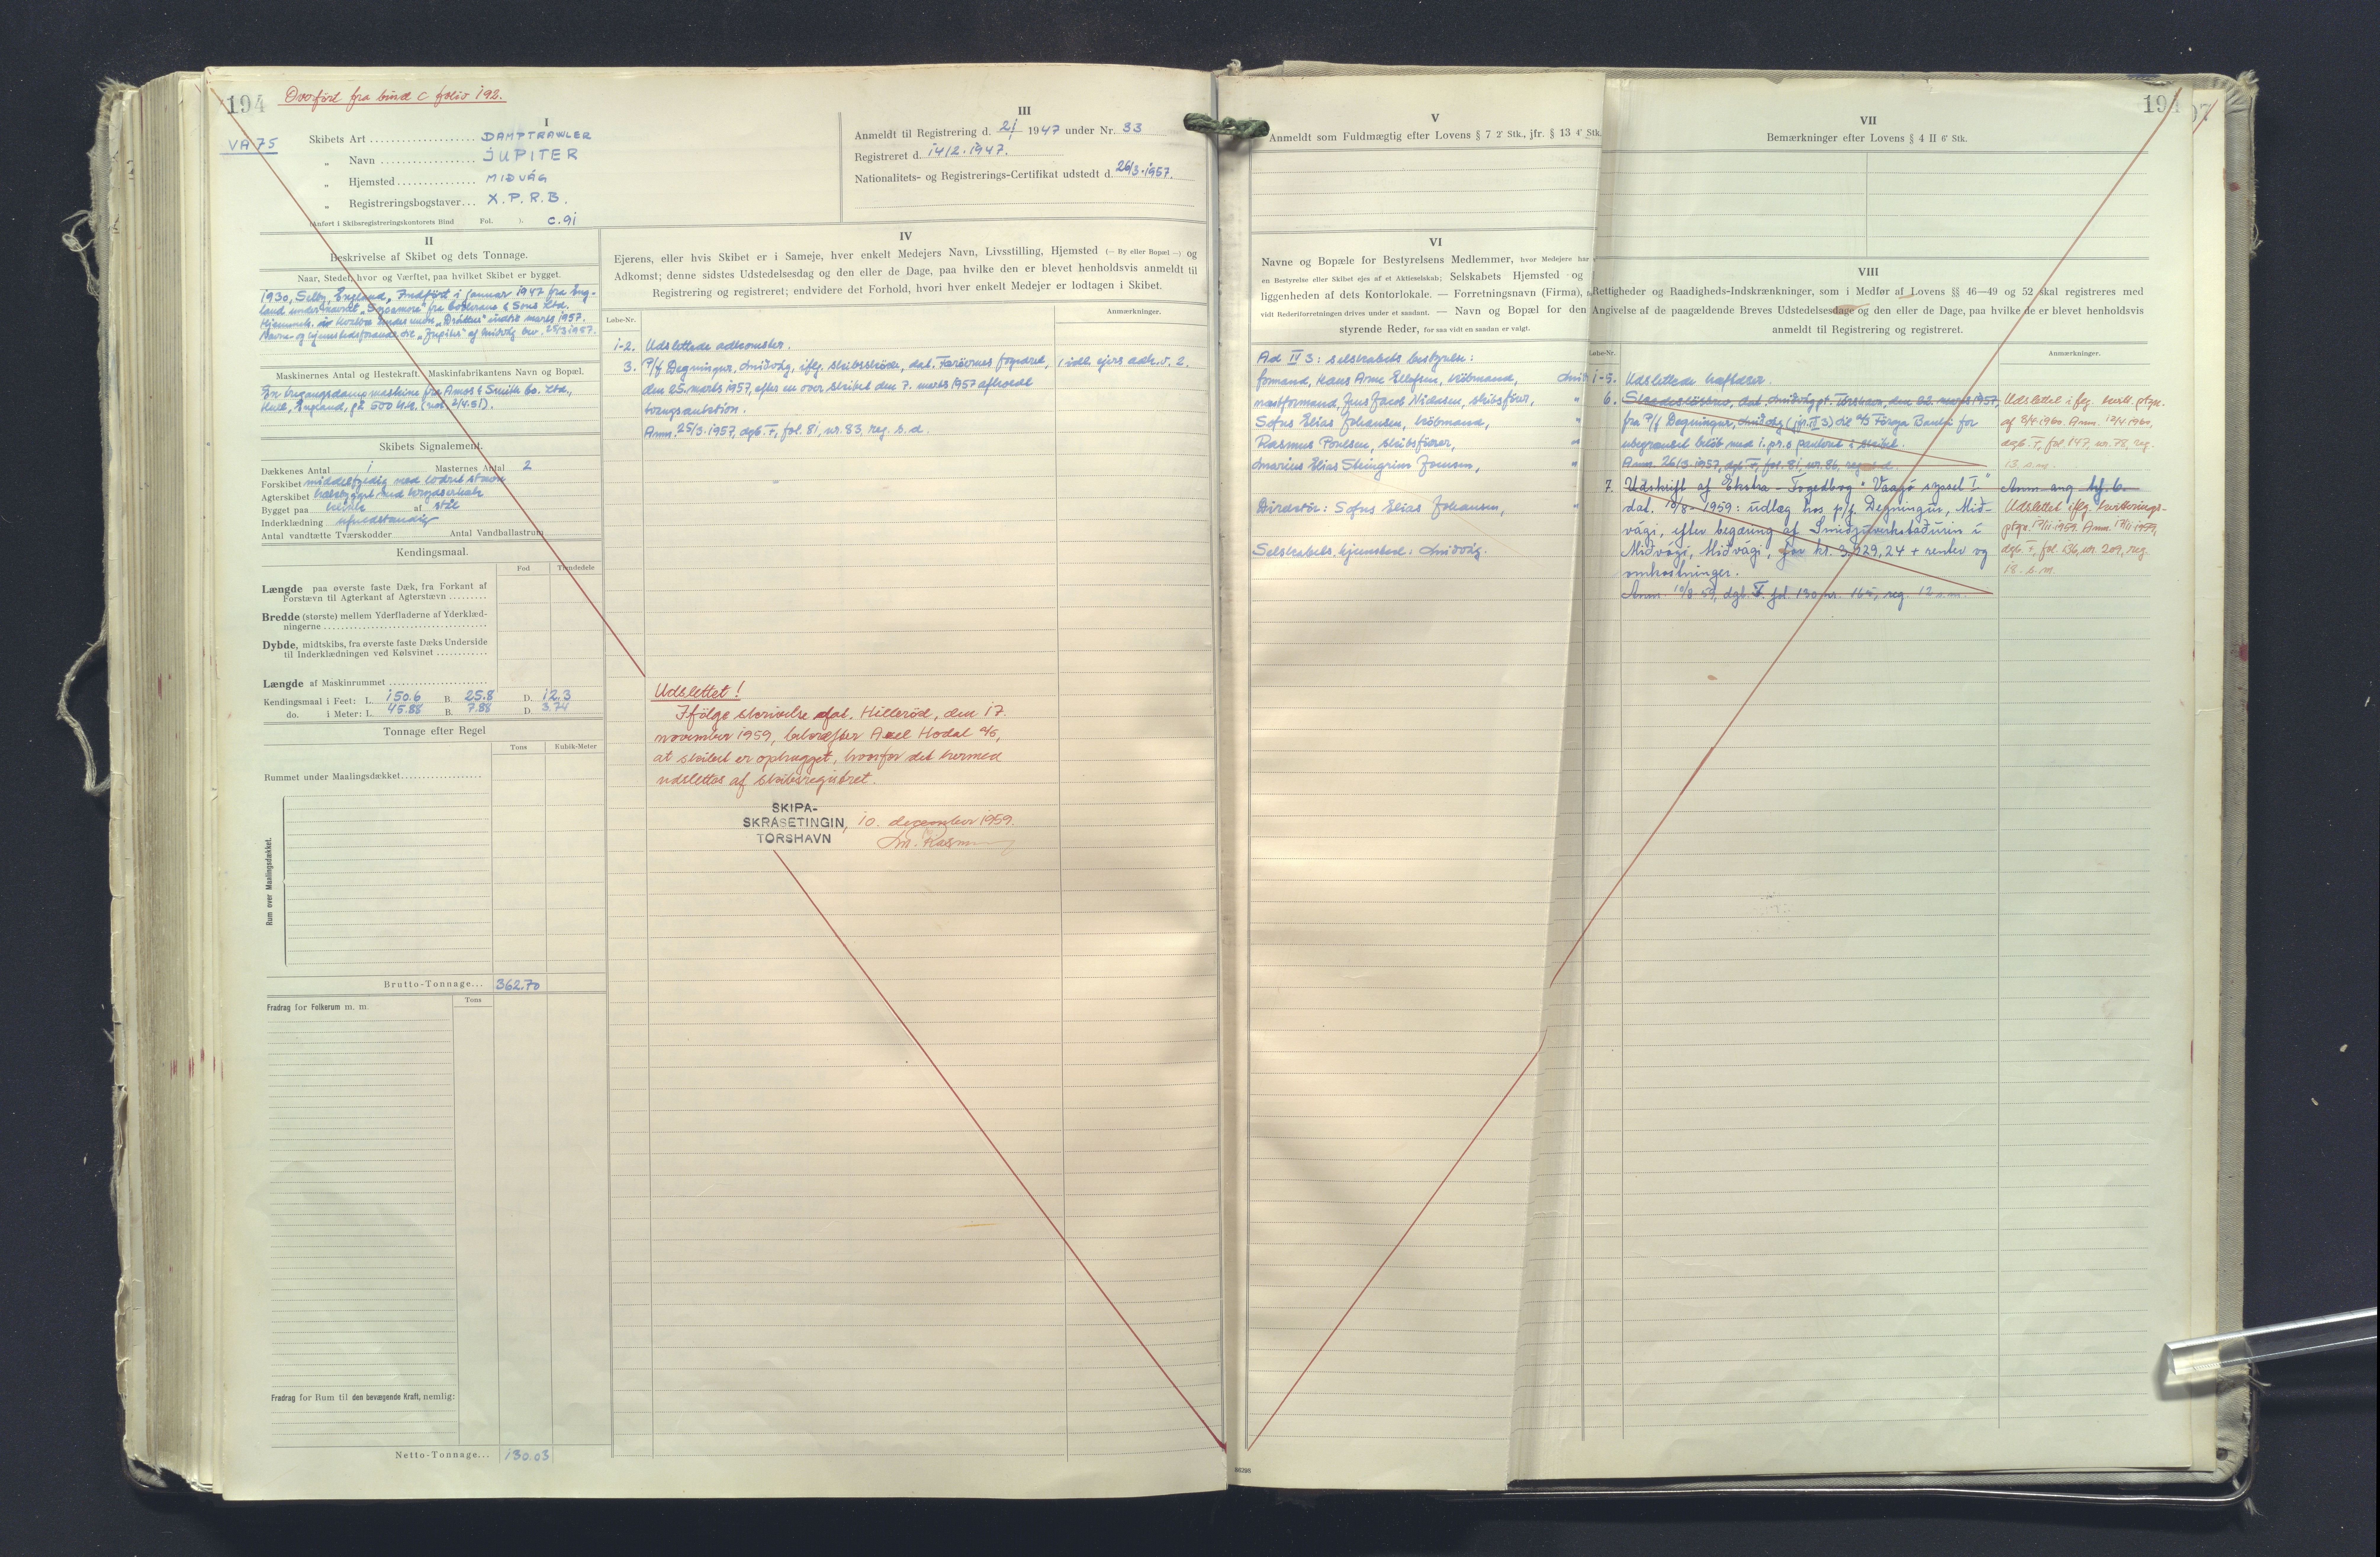 194
Overført fra bind C folio 192.
VA 75
I
Skibets Art DAMPTRAWLER
„ Navn JUPITER
„ Hjemsted MIÐVÁG
„ Registreringsbogstaver... X.P.R.B.
(Anført i Skibsregistreringskontorets Bind Fol. ) C.91
III
Anmeldt til Registrering d. 2/1 1947 under Nr. 33
Registreret d. 14/2.1947.
Nationalitets- og Registrerings-Certifikat udstedt d. 26/3.1957.
II
Beskrivelse af Skibet og dets Tonnage.
Naar, Stedet, hvor og Værftet, paa hvilket Skibet er bygget.
1930, Selby, England, Indført i januar 1947 fra Eng-
land under navnet fra Cochrane & Sons Ltd.
indtil marts 1957.
"Jupiter" af Miðvág bev. 25/3 1957.
Maskinernes Antal og Hestekraft. Maskinfabrikantens Navn og Bopæl.
En tregangsdampmaskine fra Amos & Smith Co. Ltd.,
Hull, England, på 500 H.K.
Skibets Signalement.
Dækkenes Antal 1 Masternes Antal 2
Forskibet middelfyldig med lodret stævn
Agterskibet hækbygget med krydserhæk
Bygget paa kravel af stål
Inderklædning ufuldstændig
Antal vandtætte Tværskodder Antal Vandballastrum
Kendingsmaal.
Fod Tiendedele
Længde paa øverste faste Dæk, fra Forkant af
Forstævn til Agterkant af Agterstævn
Bredde (største) mellem Yderfladerne af Yderklæd-
ningerne
Dybde, midtskibs, fra øverste faste Dæks Underside
til Inderklædningen ved Kølsvinet
Længde af Maskinrummet
Kendingsmaal i Feet: L. 150.6 B. 25.8 D. 12.3
do. i Meter: L. 45.88 B. 7.88 D. 3.74
Tonnage efter Regel
Tons Kubik-Meter
Rummet under Maalingsdækket
Rum over Maalingsdækket.
Brutto-Tonnage... 362.70
Fradrag for Folkerum m. m. Tons
Fradrag for Rum til den bevægende Kraft, nemlig:
Netto-Tonnage... 130.03
IV
Ejerens, eller hvis Skibet er i Sameje, hver enkelt Medejers Navn, Livsstilling, Hjemsted (— By eller Bopæl —) og
Adkomst; denne sidstes Udstedelsesdag og den eller de Dage, paa hvilke den er blevet henholdsvis anmeldt til
Registrering og registreret; endvidere det Forhold, hvori hver enkelt Medejer er lodtagen i Skibet.
Løbe-Nr. Anmærkninger.
1-2. Udslettede adkomster.
3. P/f Degningur, Miðvág, iflg. skibsskøde, dat. Færøernes fogedret,
den 25. marts 1957, efter en over skibet den 7. marts 1957 afholdt
tvangsauktion.
Anm. 25/3.1957, dgb. F, fol. 81, nr. 83, reg. s.d.
Udslettet!
Ifølge skrivelse dat. Hillerød, den 17.
november 1959, bekræfter Axel Hodal A/S,
at skibet er ophugget, hvorfor det hermed
udslettes af skibsregistret.
SKIPA-
SKRÁSETINGIN, 10. december 1959.
TÓRSHAVN
V
Anmeldt som Fuldmægtig efter Lovens § 7 2' Stk., jfr. § 13 4' Stk.
VI
Navne og Bopæle for Bestyrelsens Medlemmer, hvor Medejere har
en Bestyrelse eller Skibet ejes af et Aktieselskab; Selskabets Hjemsted og
liggenheden af dets Kontorlokale. — Forretningsnavn (Firma),
vidt Rederiforretningen drives under et saadant. — Navn og Bopæl for den
styrende Reder, for saa vidt en saadan er valgt.
Ad IV 3: selskabets bestyrelse:
formand, Hans Arne Ellefsen, købmand,
næstformand, Jens Jacob Niclasen, skibsfører, "
Sofus Elias Johansen, købmand, "
Rasmus Poulsen, skibsfører, "
Marius Elias Steingrim Joensen, "
Direktør: Sofus Elias Johansen, "
Selskabets hjemsted: Miðvág.
86298
194
VII
Bemærkninger efter Lovens § 4 II 6' Stk.
VIII
Rettigheder og Raadigheds-Indskrænkninger, som i Medfør af Lovens §§ 46—49 og 52 skal registreres med
Angivelse af de paagældende Breves Udstedelsesdage og den eller de Dage, paa hvilke de er blevet henholdsvis
anmeldt til Registrering og registreret.
Løbe-Nr. Anmærkninger.
1-5. Udslettede hæftelser.
6. Skadesløsbrev, dat. Miðvág pt. Tórshavn, den 22. marts 1957,
fra P/f Degningur, Miðvág (jfr. IV 3) til A/S Føroya Banki for
ubegrænset beløb med 1. pr. s. panteret i skibet.
Anm. 26/3.1957, dgb. F, fol. 81, nr. 86,
Udslettet i flg. kvitt. ptgn.
af 8/4.1960. Anm. 12/4.1960,
dgb. F, fol. 147, nr. 78, reg.
13. s.m.
7. Udskrift af Ekstra-Fogedbog "Vaagø syssel I"
dat. 10/8-1959: udlæg hos p/f. Degningur, Mið-
vági, efter begæring af Smiðjuverkstaðurin í
Miðvági, Miðvági, for kr. 3,929,24 + renter og
omkostninger.
Anm. 10/8-59, dgb. F. fol. 130, nr. 165, reg. 12 s.m.
Anm. ang. hf. 6.
Udslettet iflg. kvitterings-
ptgn. 17/11.1959. Anm. 17/11.1959,
dgb. F, fol. 136, nr. 209, reg.
18. s.m.